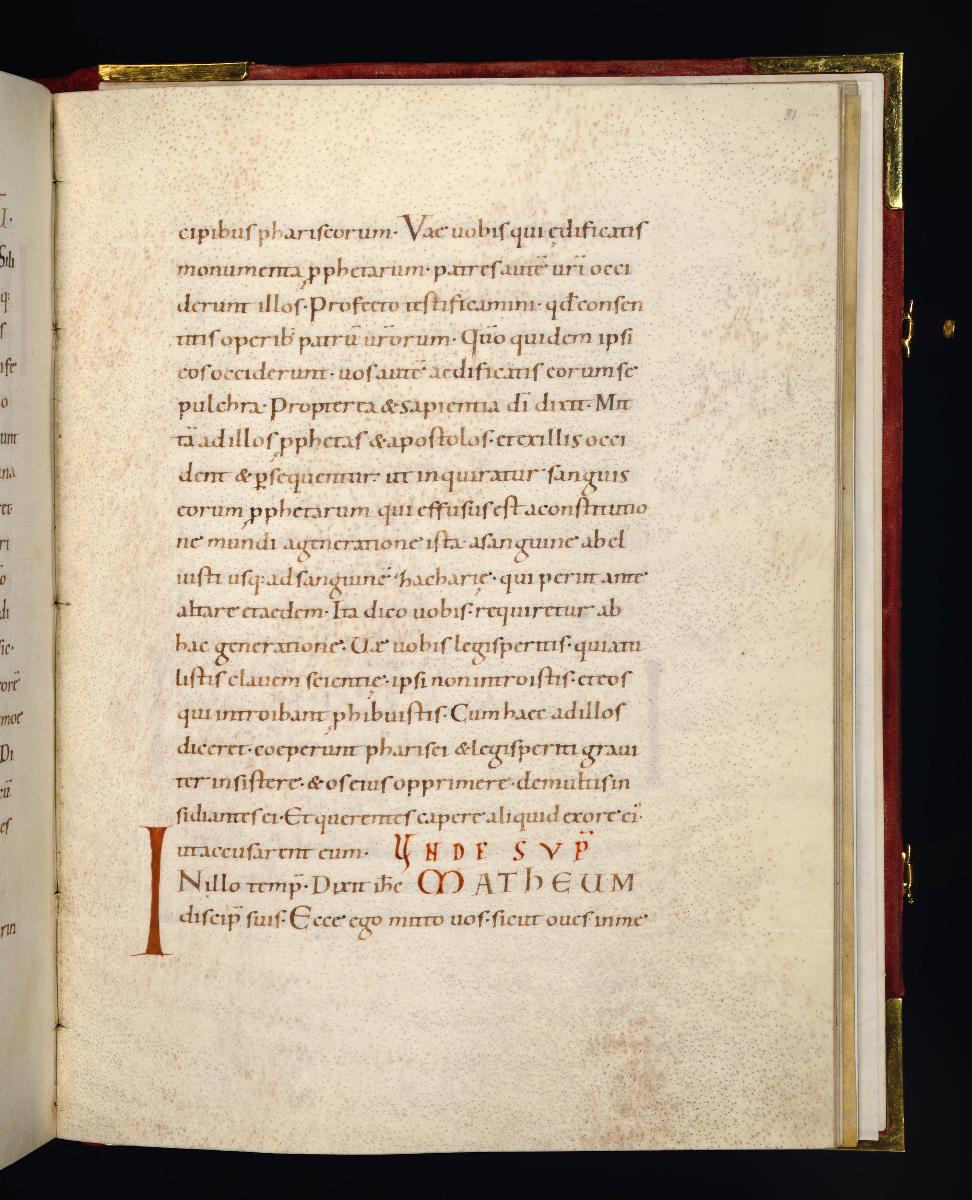 81
cipibus phariseorum· Vae uobis qui ędificatis
monumenta ꝓphetarum· patres autē urī occi
derunt illos· Profecto testificamini· qđ consen
titis operib; patrū urōrum· Quō quidem ipsi
eos occiderunt· uos autē aedificatis eorum se
pulchra· Propterea & sapientia dī dixit· Mit
tā ad illos ꝓphetas & apostolos· et ex illis occi
dent & ꝑsequentur· ut inquiratur sanguis
eorum ꝓphetarum qui effusus est a constitutio
ne mundi a generatione ista· a sanguine abel
iusti usq; ad sanguinē zacharię· qui periit ante
altare et aedem· Ita dico uobis· requiretur ab
hac generatione· Uae uobis legisperitis· quia tu
listis clauem scientię· ipsi non introistis· et eos
qui introibant phibuistis· Cum haec ad illos
diceret· coeperunt pharisei & legisperiti graui
ter insistere· & os eius opprimere· de multis in
sidiantes ei· Et querentes capere aliquid ex ore ei;
ut accusarent eum· UNDE SUP̄
IN illo temp̄· Dixit ihc̄ MATHEUM
discip̄ suis· Ecce ego mitto uos· sicut oues in me